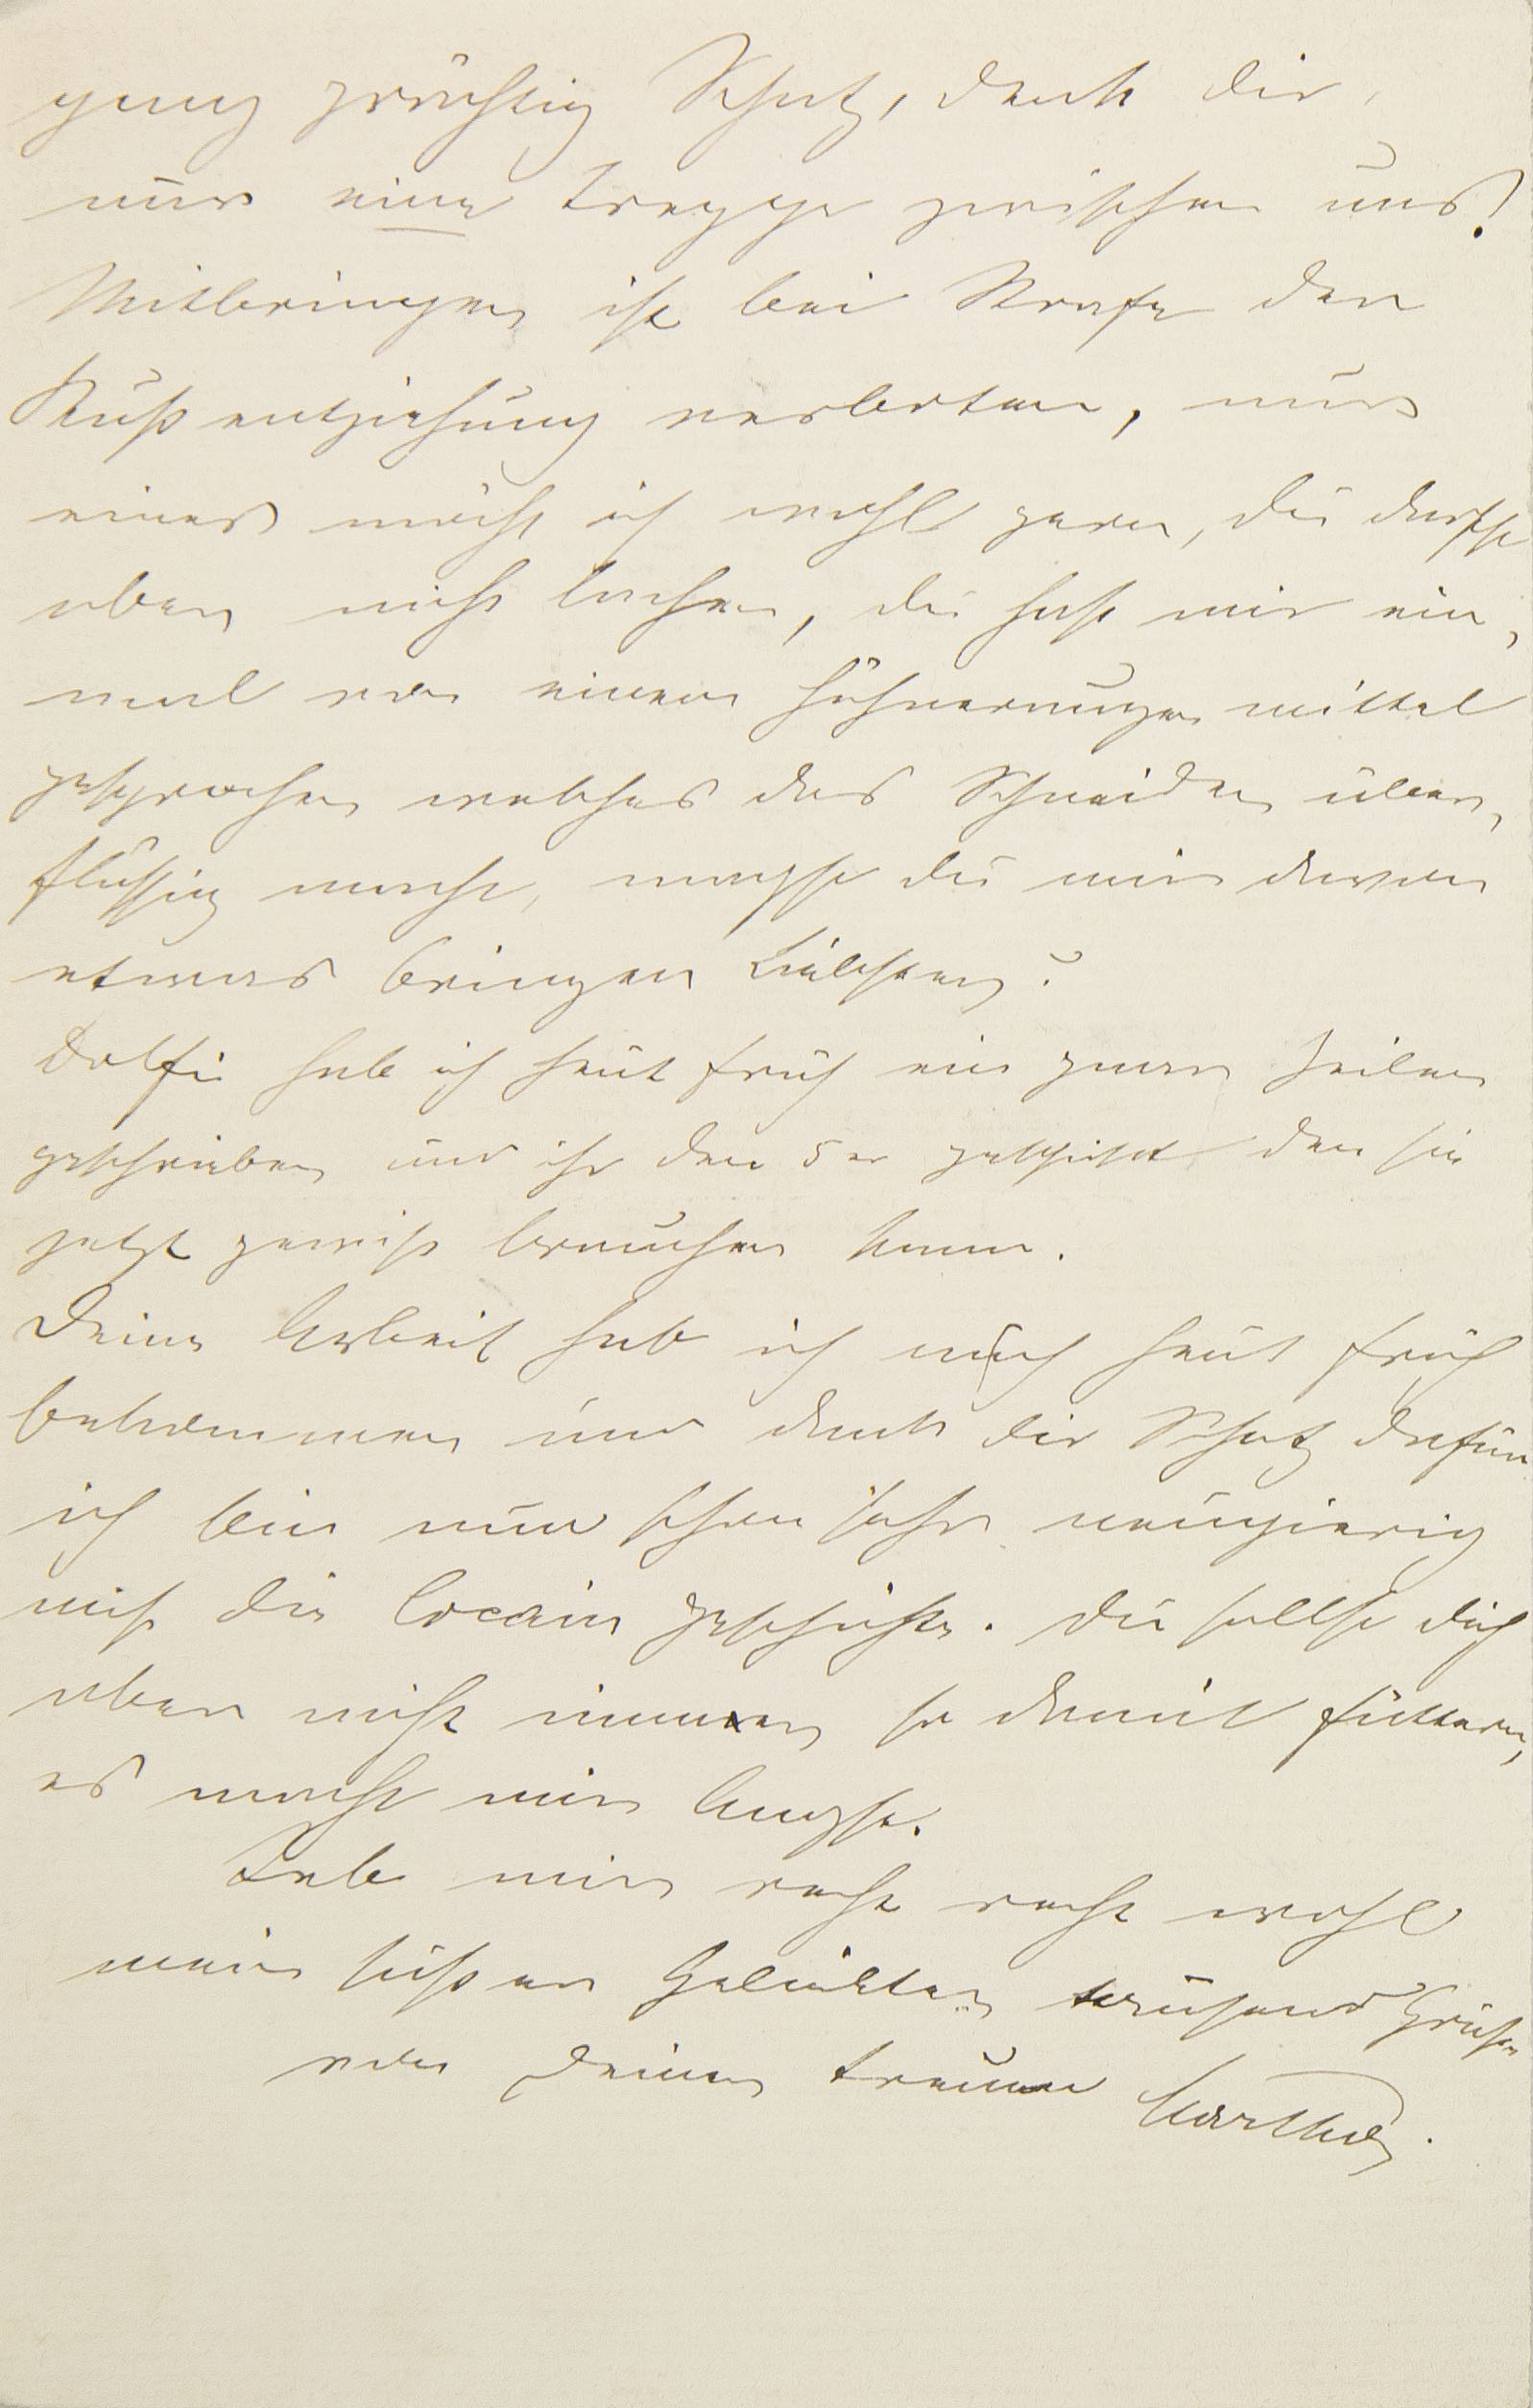 ganz prächtig Schatz, denk dir,
nur eine Treppe zwischen uns!
Mitbringen ist bei Strafe der
Kußentziehung verboten, nur
eines möcht ich wohl gern, du darfst
aber nicht lachen, du hast mir ein,
mal von einem Hühneraugenmittel
gesprochen welches das Schneiden über,
flüssig macht, magst du mir davon
etwas bringen Liebster?
Dolfi hab ich heut früh ein paar Zeilen
geschrieben und ihr den 5er geschickt den sie
jetzt gewiß brauchen kann.
Deine Arbeit hab ich auch heut früh
bekommen und dank dir Schatz dafür
ich bin nun schon sehr neugierig
auf die Cocain geschichte. Du sollst dich
aber nicht immer so damit füttern,
es macht mir Angst.
Leb mir recht recht wohl
mein süßer Geliebter tausend Grüße
von deiner treuen Martha.